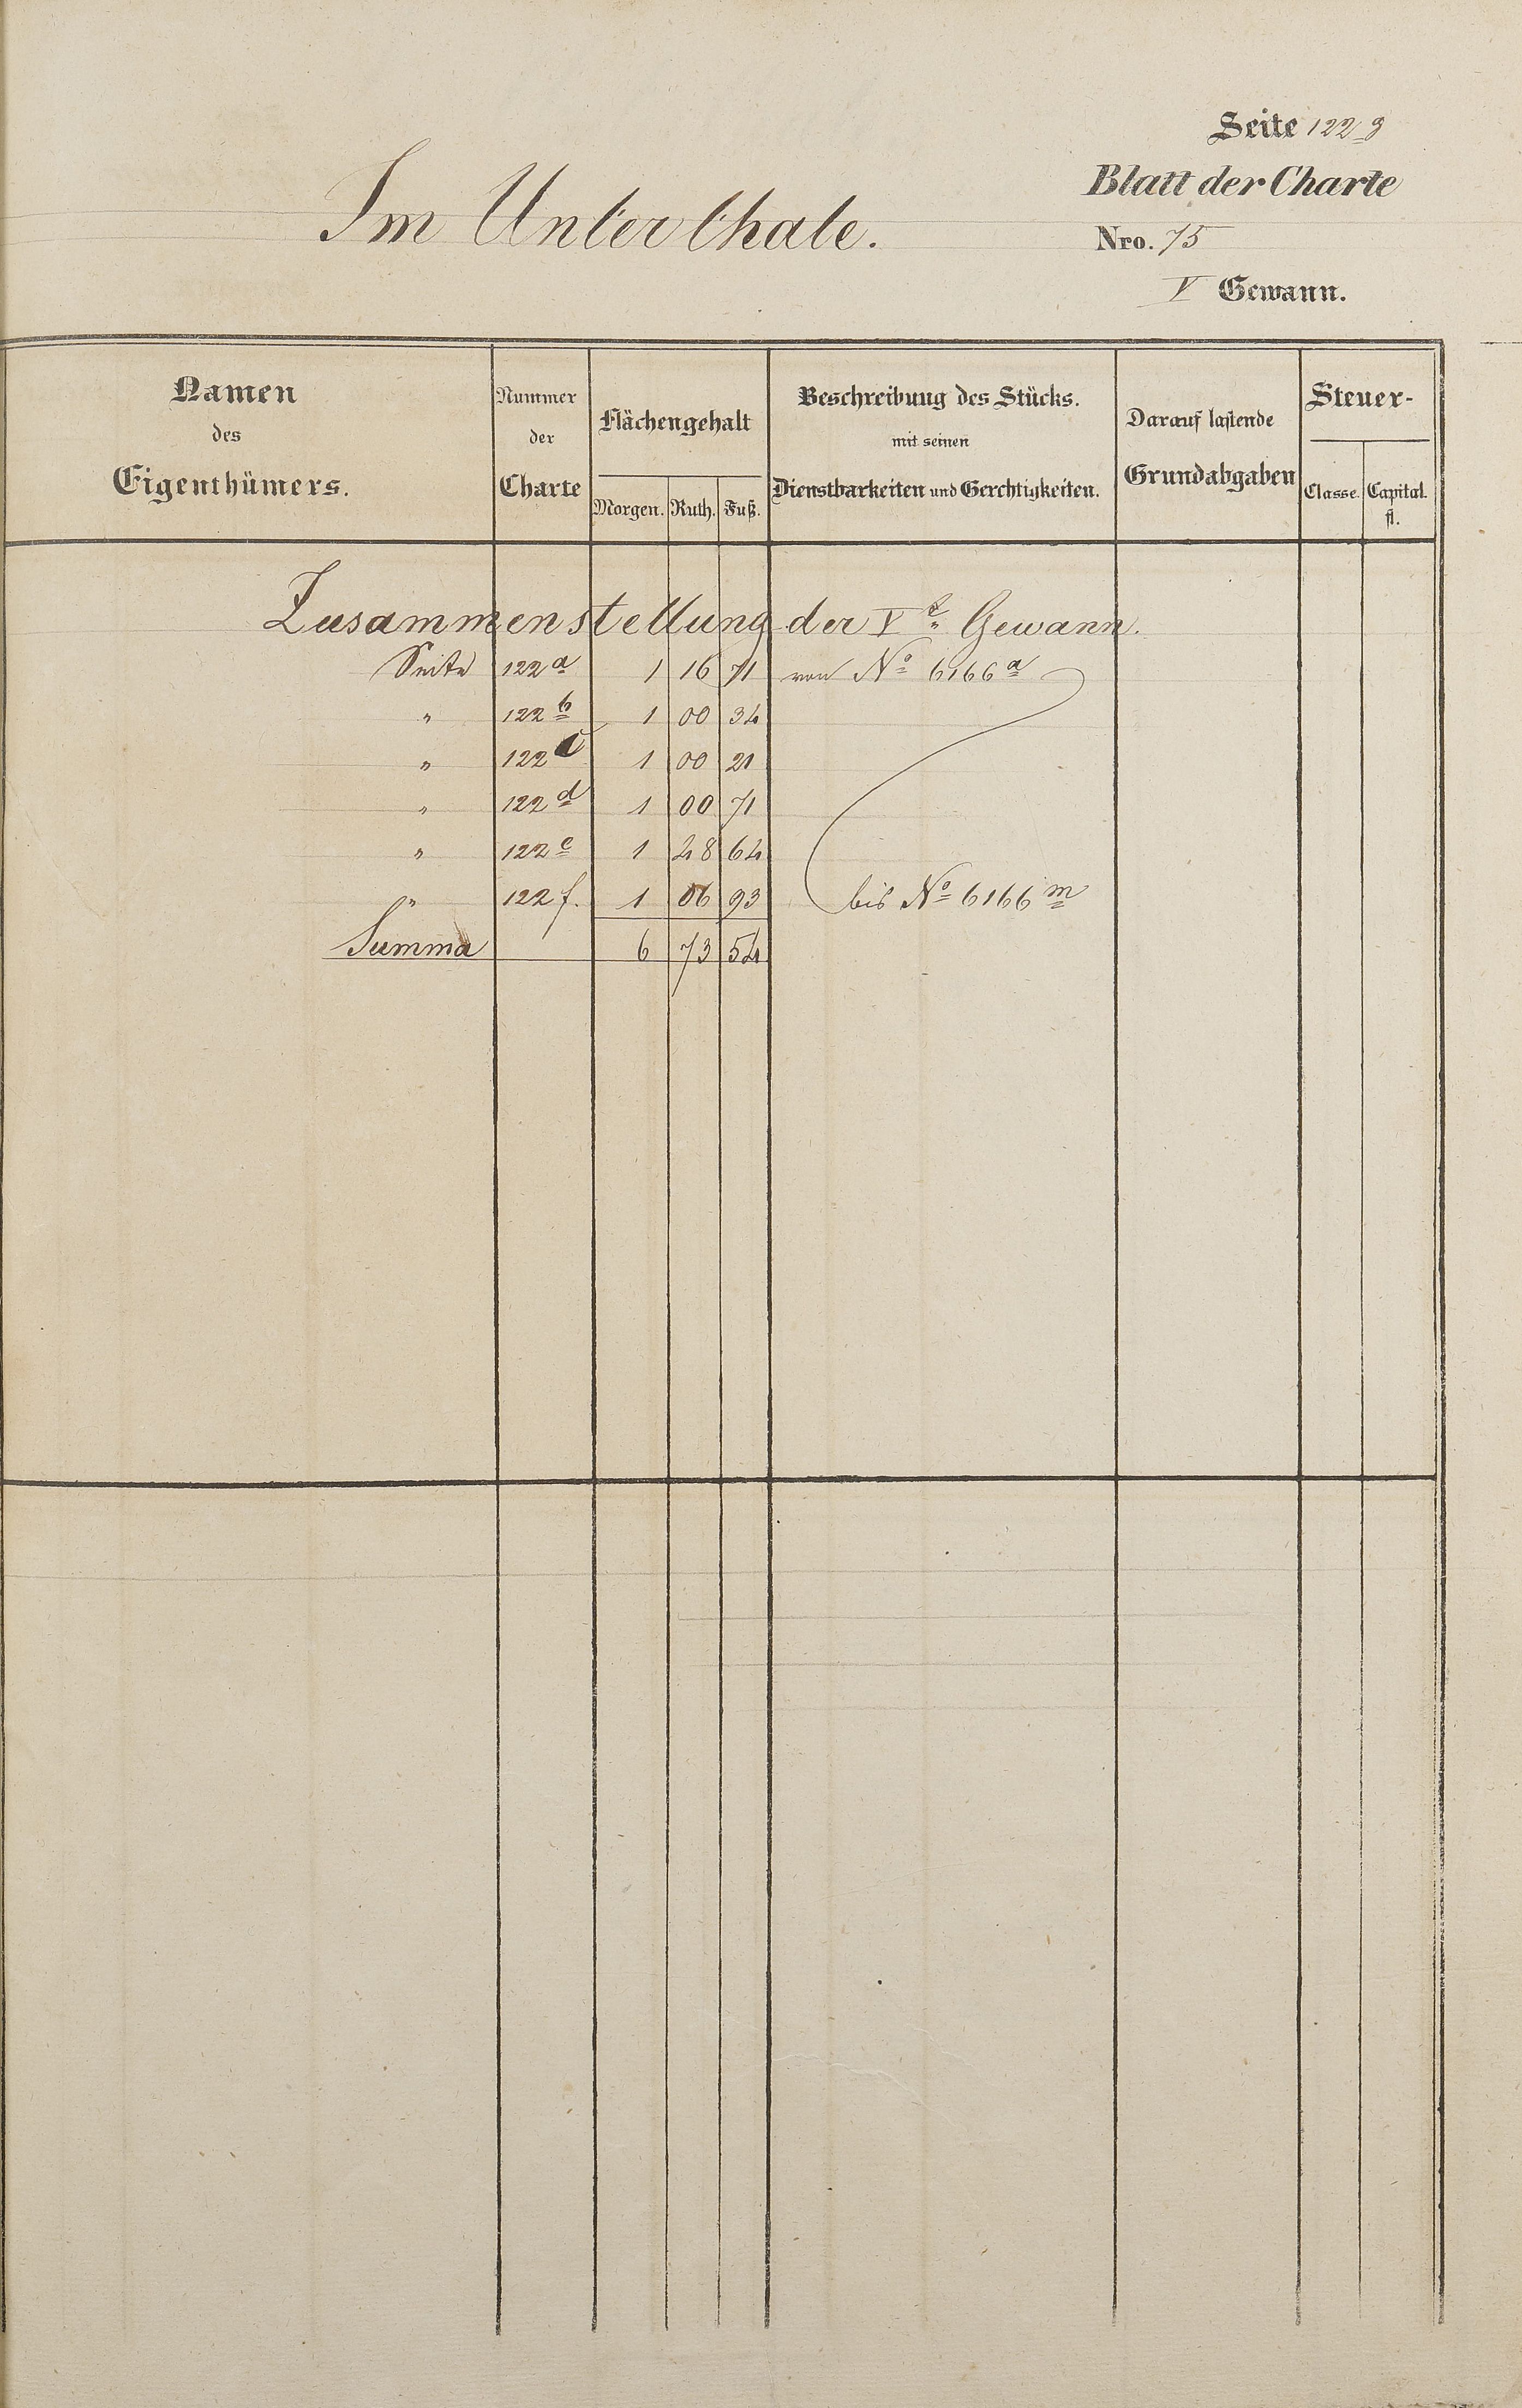 Seite 122 g
Blatt der Charte
Im Unterthale.
Nro. 75
V Gewann.
Namen des Eigenthümers.
Nummer der Charte
Flächengehalt
Morgen. Ruth. Fuß.
Beschreibung des Stücks. mit seinen Dienstbarkeiten und Gerechtigkeiten.
Darauf lastende Grundabgaben
Steuer-
Classe. Capital. fl.
Zusammenstellung der Vt. Gewann.
Seite 122 a 1 16 71 von No 6166 a
" 122 b 1 00 34
" 122 c 1 00 21
" 122 d 1 00 71
" 122 e 1 48 64
" 122 f. 1 06 93 bis No 6166 m
Summa 6 73 54